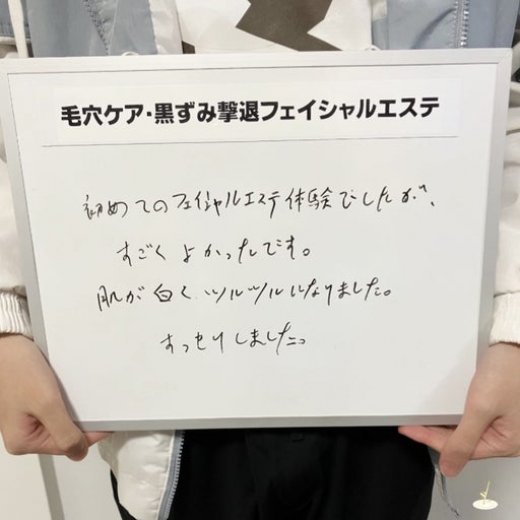 毛穴ケア・黒ずみ撃退フェイシャルエステ
初めてのフェイシャルエステ体験でしたが、
すごくよかったです。
肌が白く、ツルツルになりました。
すっきりしました。